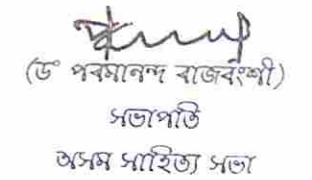 (ড° পৰমানন্দ ৰাজবংশী)
সভাপতি
অসম সাহিত্য সভা